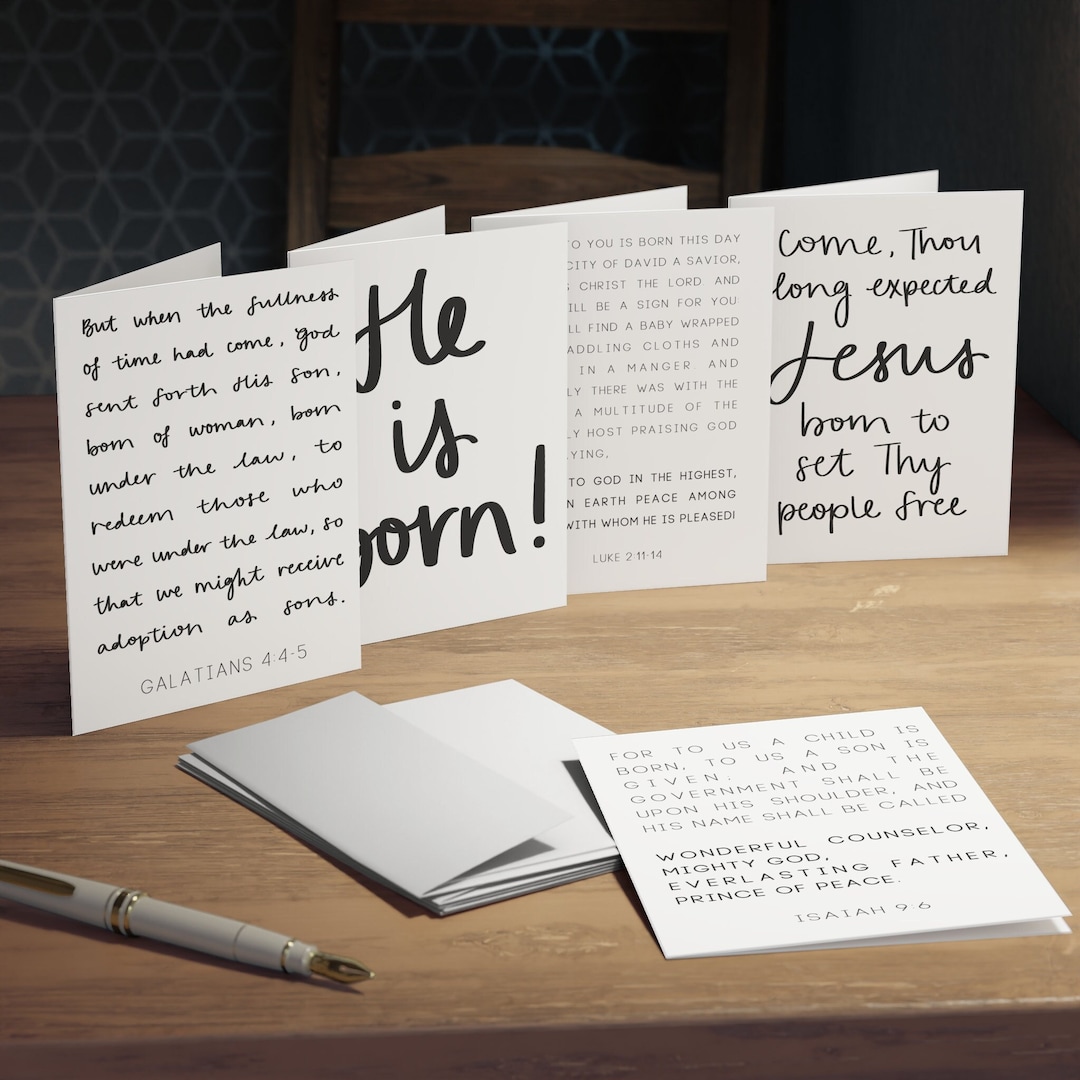 But when the fullness
of time had come, God
sent forth His Son,
born of woman, born
under the law, to
redeem those who
were under the law, so
that we might receive
adoption as sons.
GALATIANS 4:4-5
He
is
born!
TO YOU IS BORN THIS DAY
CITY OF DAVID A SAVIOR,
CHRIST THE LORD. AND
BE A SIGN FOR YOU
FIND A BABY WRAPPED
CLOTHS AND
IN A MANGER. AND
THERE WAS WITH THE
A MULTITUDE OF THE
HOST PRAISING GOD
TO GOD IN THE HIGHEST,
EARTH PEACE AMONG
WITH WHOM HE IS PLEASED!
LUKE 2:11-14
Come, Thou
long expected
Jesus
born to
set Thy
people free
FOR TO US A CHILD IS
BORN, TO US A SON IS
GIVEN; AND THE
GOVERNMENT SHALL BE
UPON HIS SHOULDER, AND
HIS NAME SHALL BE CALLED
WONDERFUL COUNSELOR,
MIGHTY GOD,
EVERLASTING FATHER,
PRINCE OF PEACE.
ISAIAH 9:6